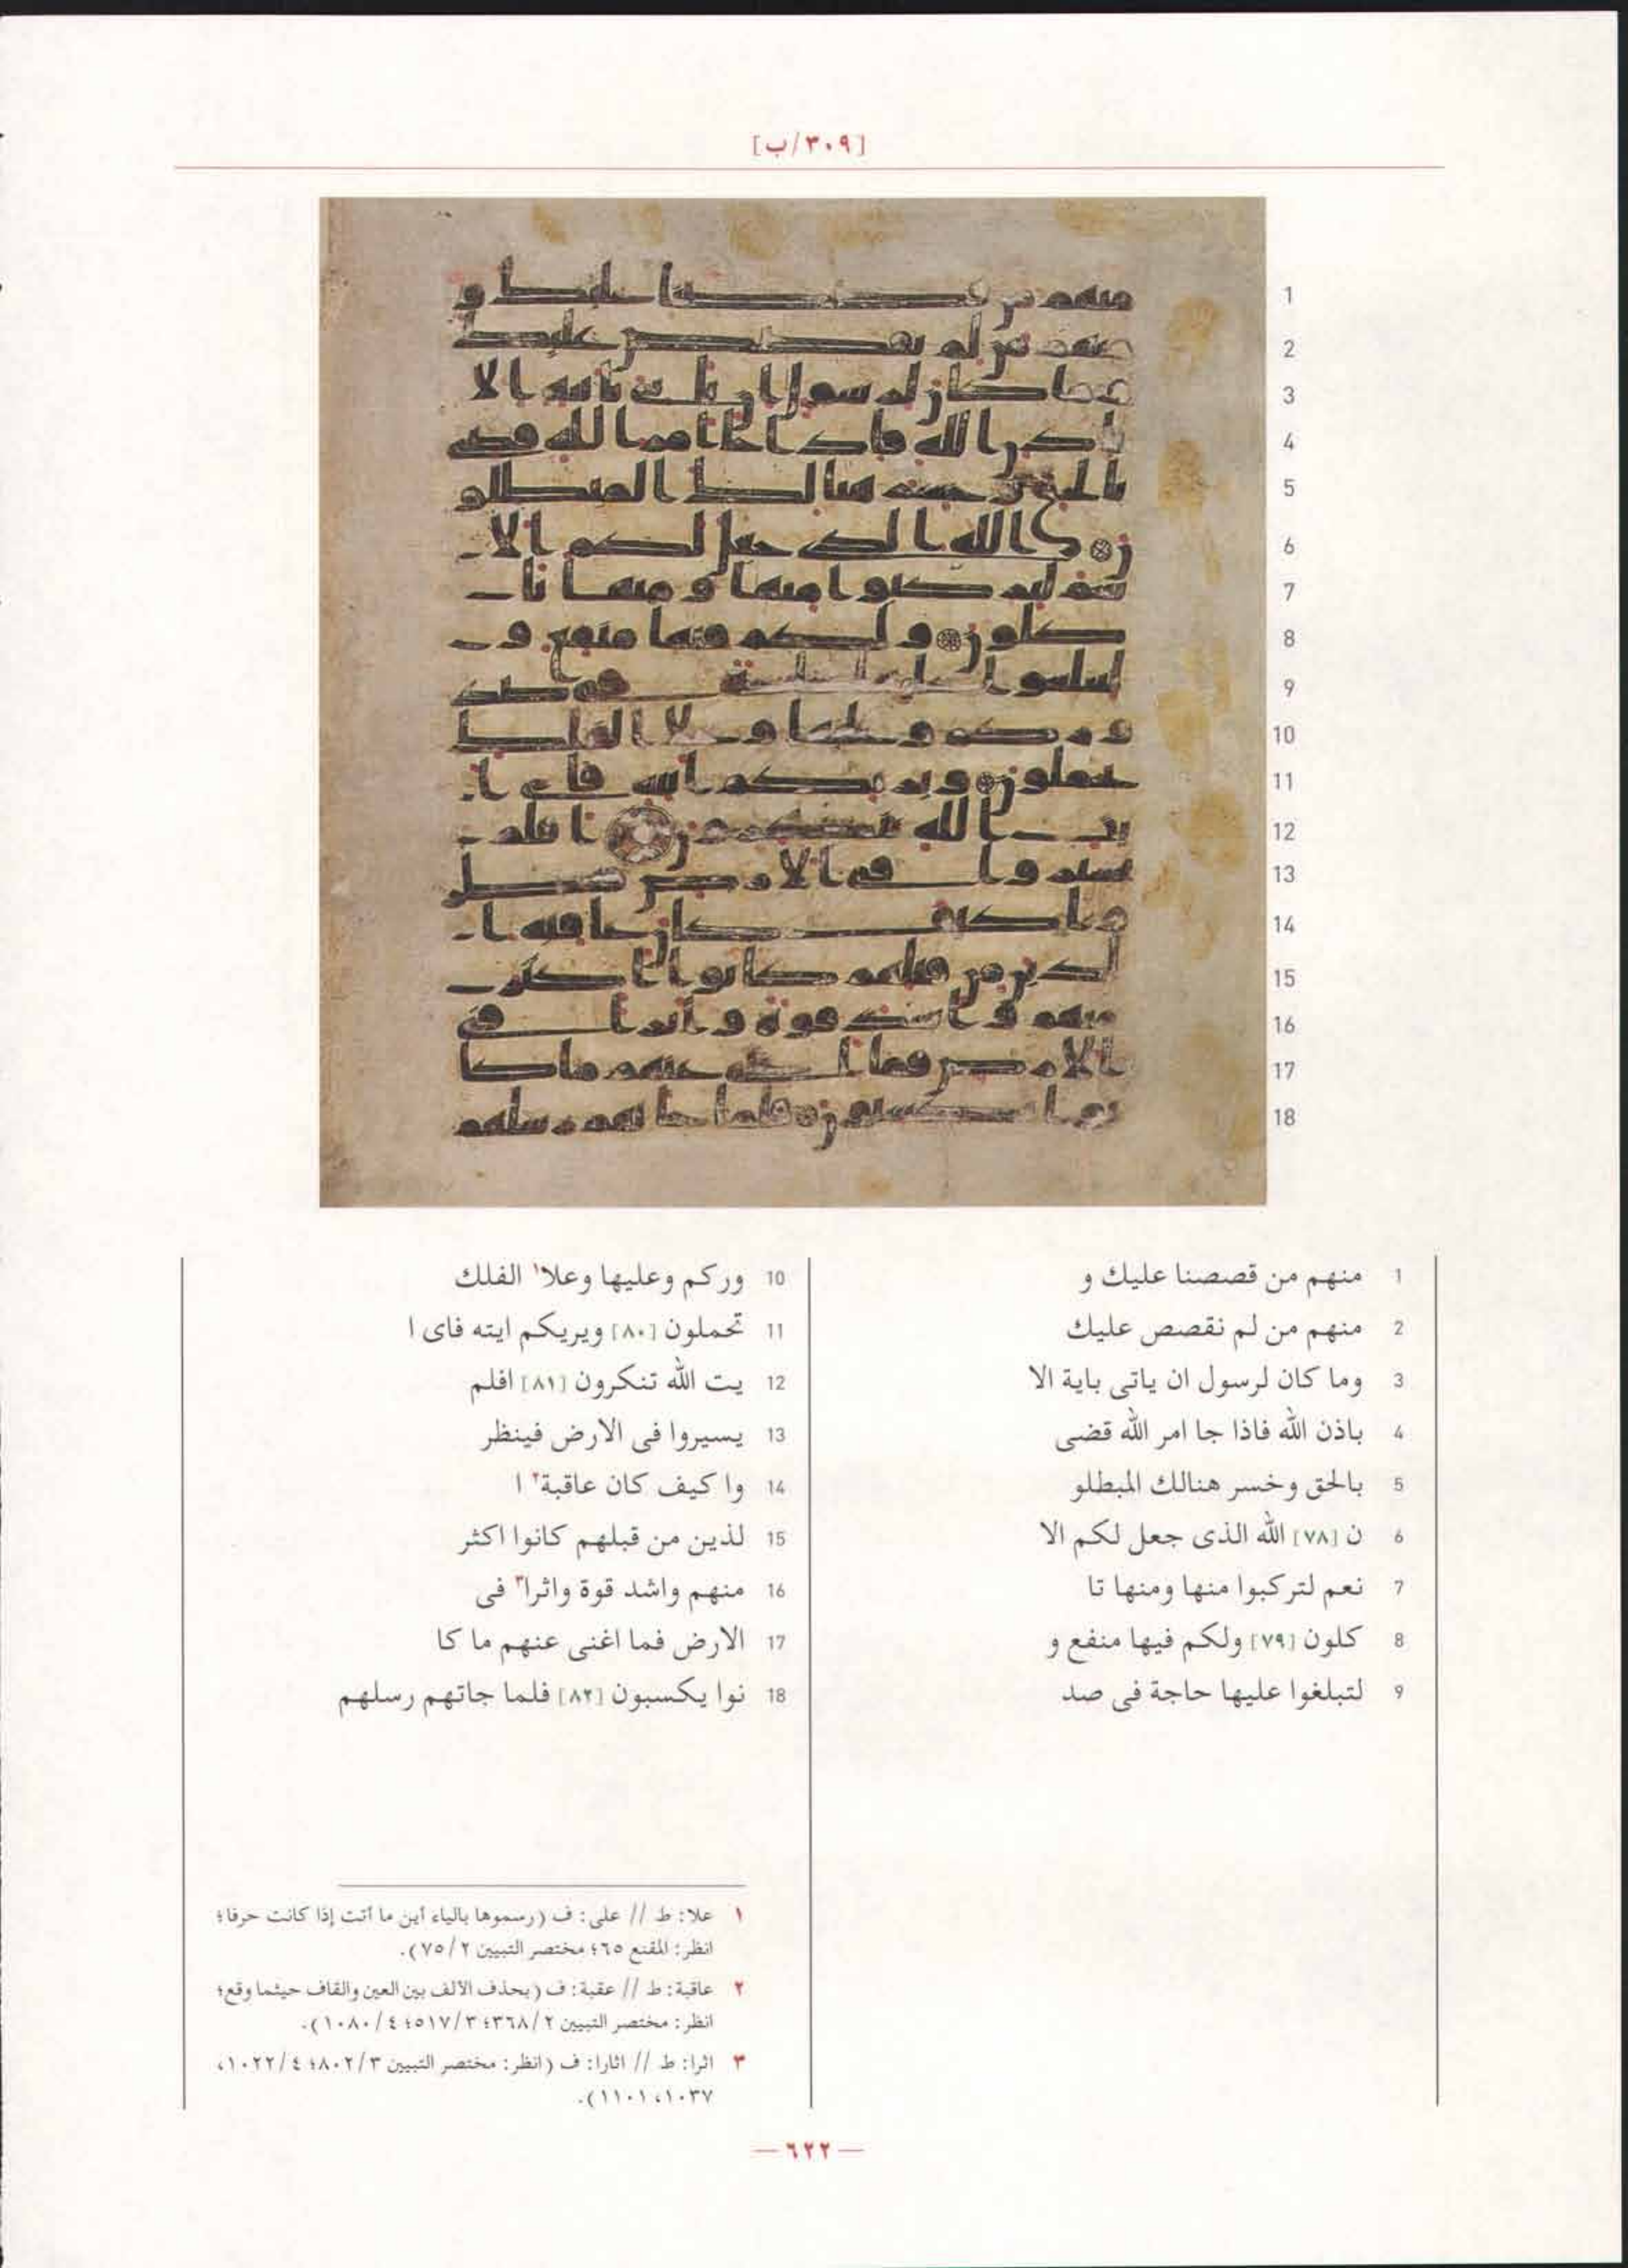 [٣٠٩/ب]
1 منهم من قصصنا عليك و
2 منهم من لم نقصص عليك
3 وما كان لرسول ان ياتى باية الا
4 باذن الله فاذا جا امر الله قضى
5 بالحق وخسر هنالك المبطلو
6 ن [٧٨] الله الذى جعل لكم الا
7 نعم لتركبوا منها ومنها تا
8 كلون [٧٩] ولكم فيها منفع و
9 لتبلغوا عليها حاجة فى صد
10 وركم وعليها وعلا١ الفلك
11 تحملون [٨٠] ويريكم ايته فاى ا
12 يت الله تنكرون [٨١] افلم
13 يسيروا فى الارض فينظر
14 وا كيف كان عاقبة٢ ا
15 لذين من قبلهم كانوا اكثر
16 منهم واشد قوة واثرا٣ فى
17 الارض فما اغنى عنهم ما كا
18 نوا يكسبون [٨٢] فلما جاتهم رسلهم
١ علا: ط // على: ف (رسموها بالياء أين ما أتت إذا كانت حرفا؛
انظر: المقنع ٦٥؛ مختصر التبيين ٧٥/٢).
٢ عاقبة: ط // عقبة: ف (بحذف الألف بين العين والقاف حيثما وقع؛
انظر: مختصر التبيين ٣٦٨/٢؛ ٥١٧/٣؛ ١٠٨٠/٤).
٣ اثرا: ط // اثارا: ف (انظر: مختصر التبيين ٨٠٢/٣؛ ١٠٢٢/٤،
١٠٣٧، ١١٠١).
— ٦٢٢ —